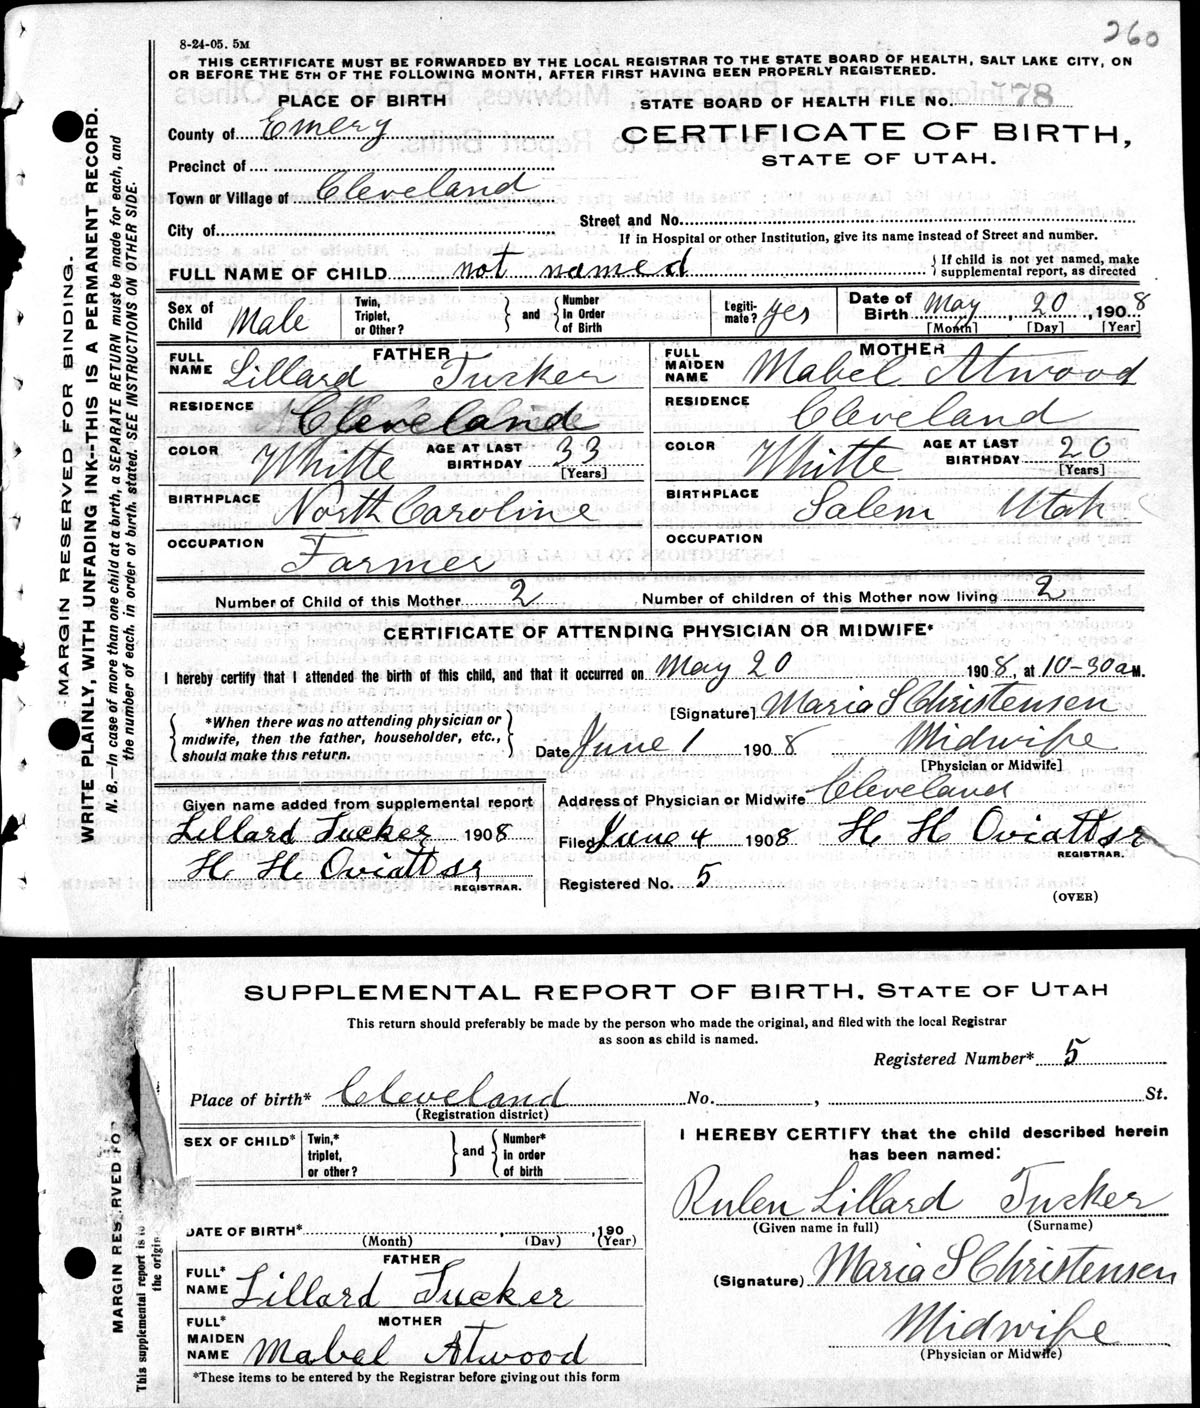 260
8-24-05. 5M
THIS CERTIFICATE MUST BE FORWARDED BY THE LOCAL REGISTRAR TO THE STATE BOARD OF HEALTH, SALT LAKE CITY, ON
OR BEFORE THE 5TH OF THE FOLLOWING MONTH, AFTER FIRST HAVING BEEN PROPERLY REGISTERED.
PLACE OF BIRTH
STATE BOARD OF HEALTH FILE No. 178
County of Emery
CERTIFICATE OF BIRTH,
STATE OF UTAH.
Precinct of
Town or Village of Cleveland
Street and No.
City of
If in Hospital or other Institution, give its name instead of Street and number.
FULL NAME OF CHILD not named
If child is not yet named, make supplemental report, as directed
Sex of Child Male Twin, Triplet, or Other? and Number In Order of Birth Legiti-mate? yes Date of Birth May 20, 1908
[Month] [Day] [Year]
FATHER
FULL NAME Lillard Tucker
MOTHER
FULL MAIDEN NAME Mabel Atwood
RESIDENCE Cleveland
RESIDENCE Cleveland
COLOR Whitte AGE AT LAST BIRTHDAY 33 [Years]
COLOR Whitte AGE AT LAST BIRTHDAY 20 [Years]
BIRTHPLACE North Caroline
BIRTHPLACE Salem Utah
OCCUPATION Farmer
OCCUPATION
Number of Child of this Mother 2 Number of children of this Mother now living 2
CERTIFICATE OF ATTENDING PHYSICIAN OR MIDWIFE*
I hereby certify that I attended the birth of this child, and that it occurred on May 20 1908, at 10-30 a M.
*When there was no attending physician or
midwife, then the father, householder, etc.,
should make this return.
[Signature] Maria S Christensen
Date June 1 1908 Midwife
[Physician or Midwife]
Given name added from supplemental report
Lillard Tucker 1908
H H Oviatt sr
REGISTRAR.
Address of Physician or Midwife Cleveland
Filed June 4 1908 H H Oviatt sr
REGISTRAR.
Registered No. 5
(OVER)
MARGIN RESERVED FOR BINDING.
WRITE PLAINLY, WITH UNFADING INK--THIS IS A PERMANENT RECORD.
N. B.—In case of more than one child at a birth, a SEPARATE RETURN must be made for each, and
the number of each, in order of birth stated. SEE INSTRUCTIONS ON OTHER SIDE.
SUPPLEMENTAL REPORT OF BIRTH, STATE OF UTAH
This return should preferably be made by the person who made the original, and filed with the local Registrar
as soon as child is named.
Registered Number* 5
Place of birth* Cleveland No. , St.
(Registration district)
SEX OF CHILD* Twin,* triplet, or other? and Number* In order of birth
DATE OF BIRTH* , 190
(Month) (Day) (Year)
FATHER
FULL* NAME Lillard Tucker
MOTHER
FULL* MAIDEN NAME Mabel Atwood
*These items to be entered by the Registrar before giving out this form
I HEREBY CERTIFY that the child described herein
has been named:
Rulen Lillard Tucker
(Given name in full) (Surname)
(Signature) Maria S Christensen
Midwife
(Physician or Midwife)
MARGIN RESERVED FO
This supplemental report is
the origin